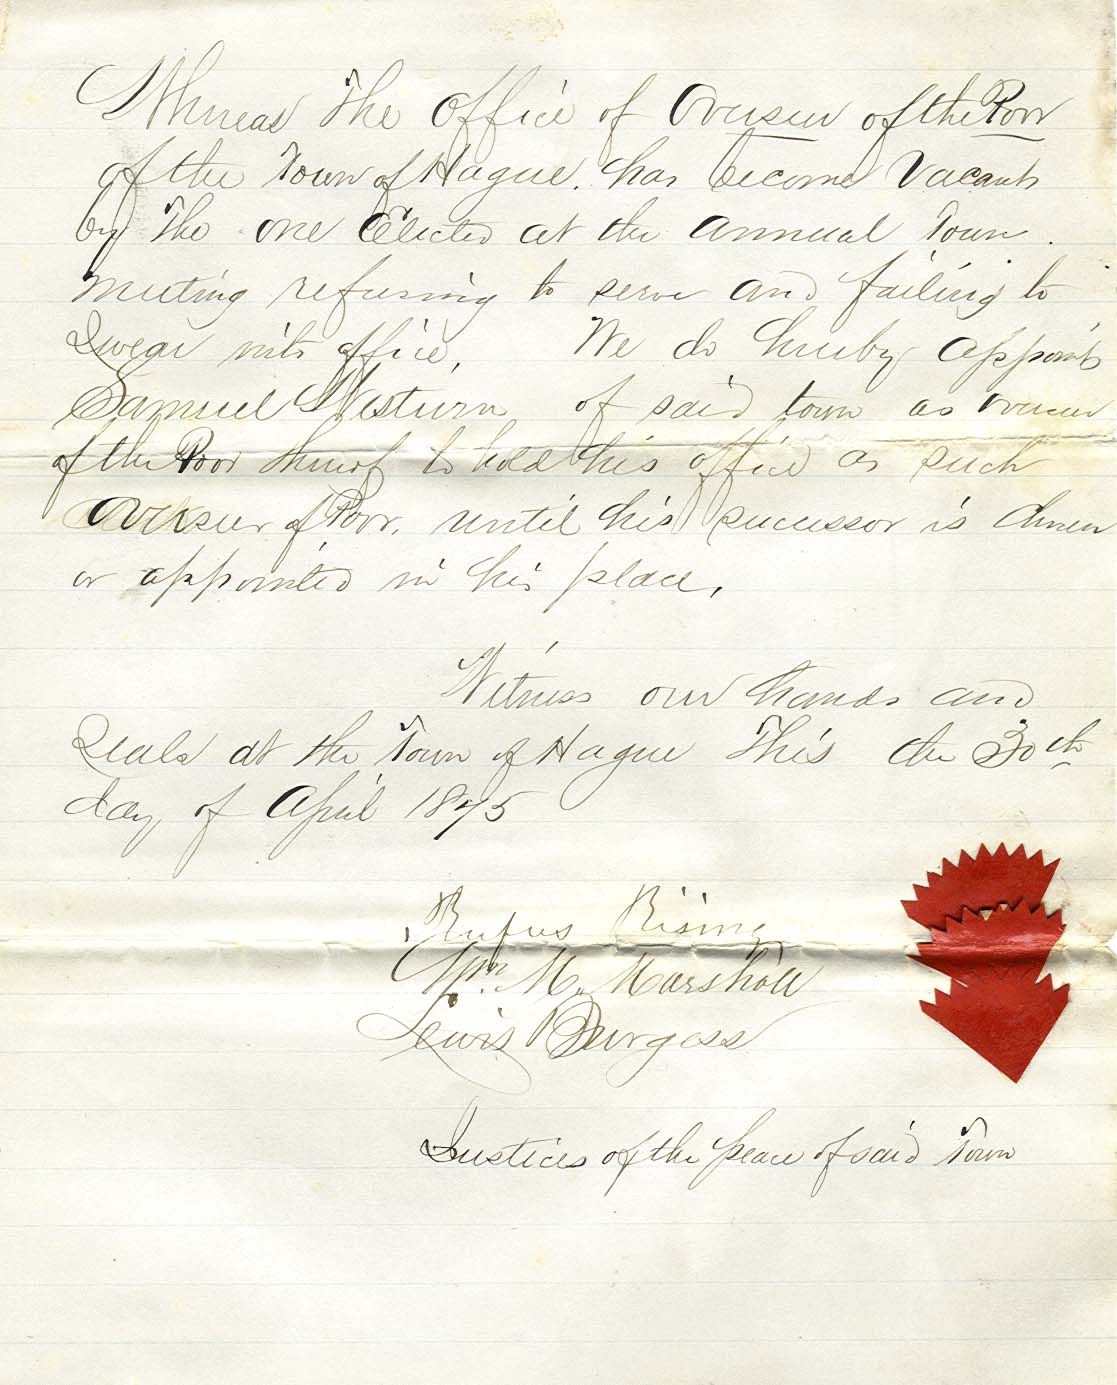 Whereas The Office of Overseer of the Poor
of the Town of Hague. has become Vacant
by The one Elected at the annual Town
meeting refusing to serve and failing to
Swear into office, We do hereby appoint
Samuel Westurn of said town as overseer
of the Poor thereof to hold his office as such
Overseer of Poor, until his successor is chosen
or appointed in his place,
Witness our hands and
Seals at the Town of Hague This the 30th
day of April 1875
Rufus Rising
Wm. M. Marshall
Lewis Burgess
Justices of the peace of said Town